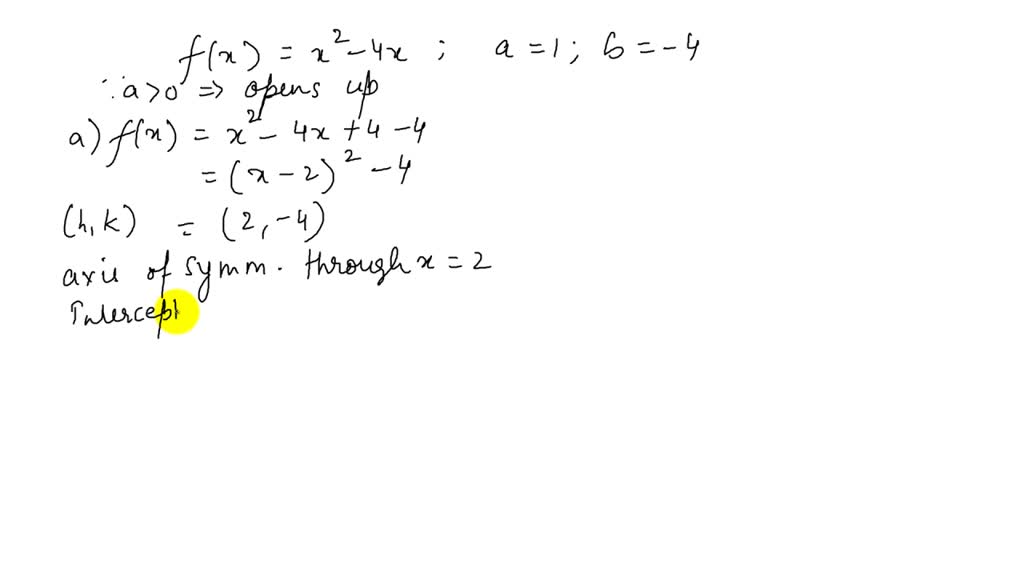 f(x) = x² - 4x ; a = 1 ; b = -4
∵ a > 0 ⇒ opens up
a) f(x) = x² - 4x + 4 - 4
= (x - 2)² - 4
(h, k) = (2, -4)
axis of symm. through x = 2
Intercept